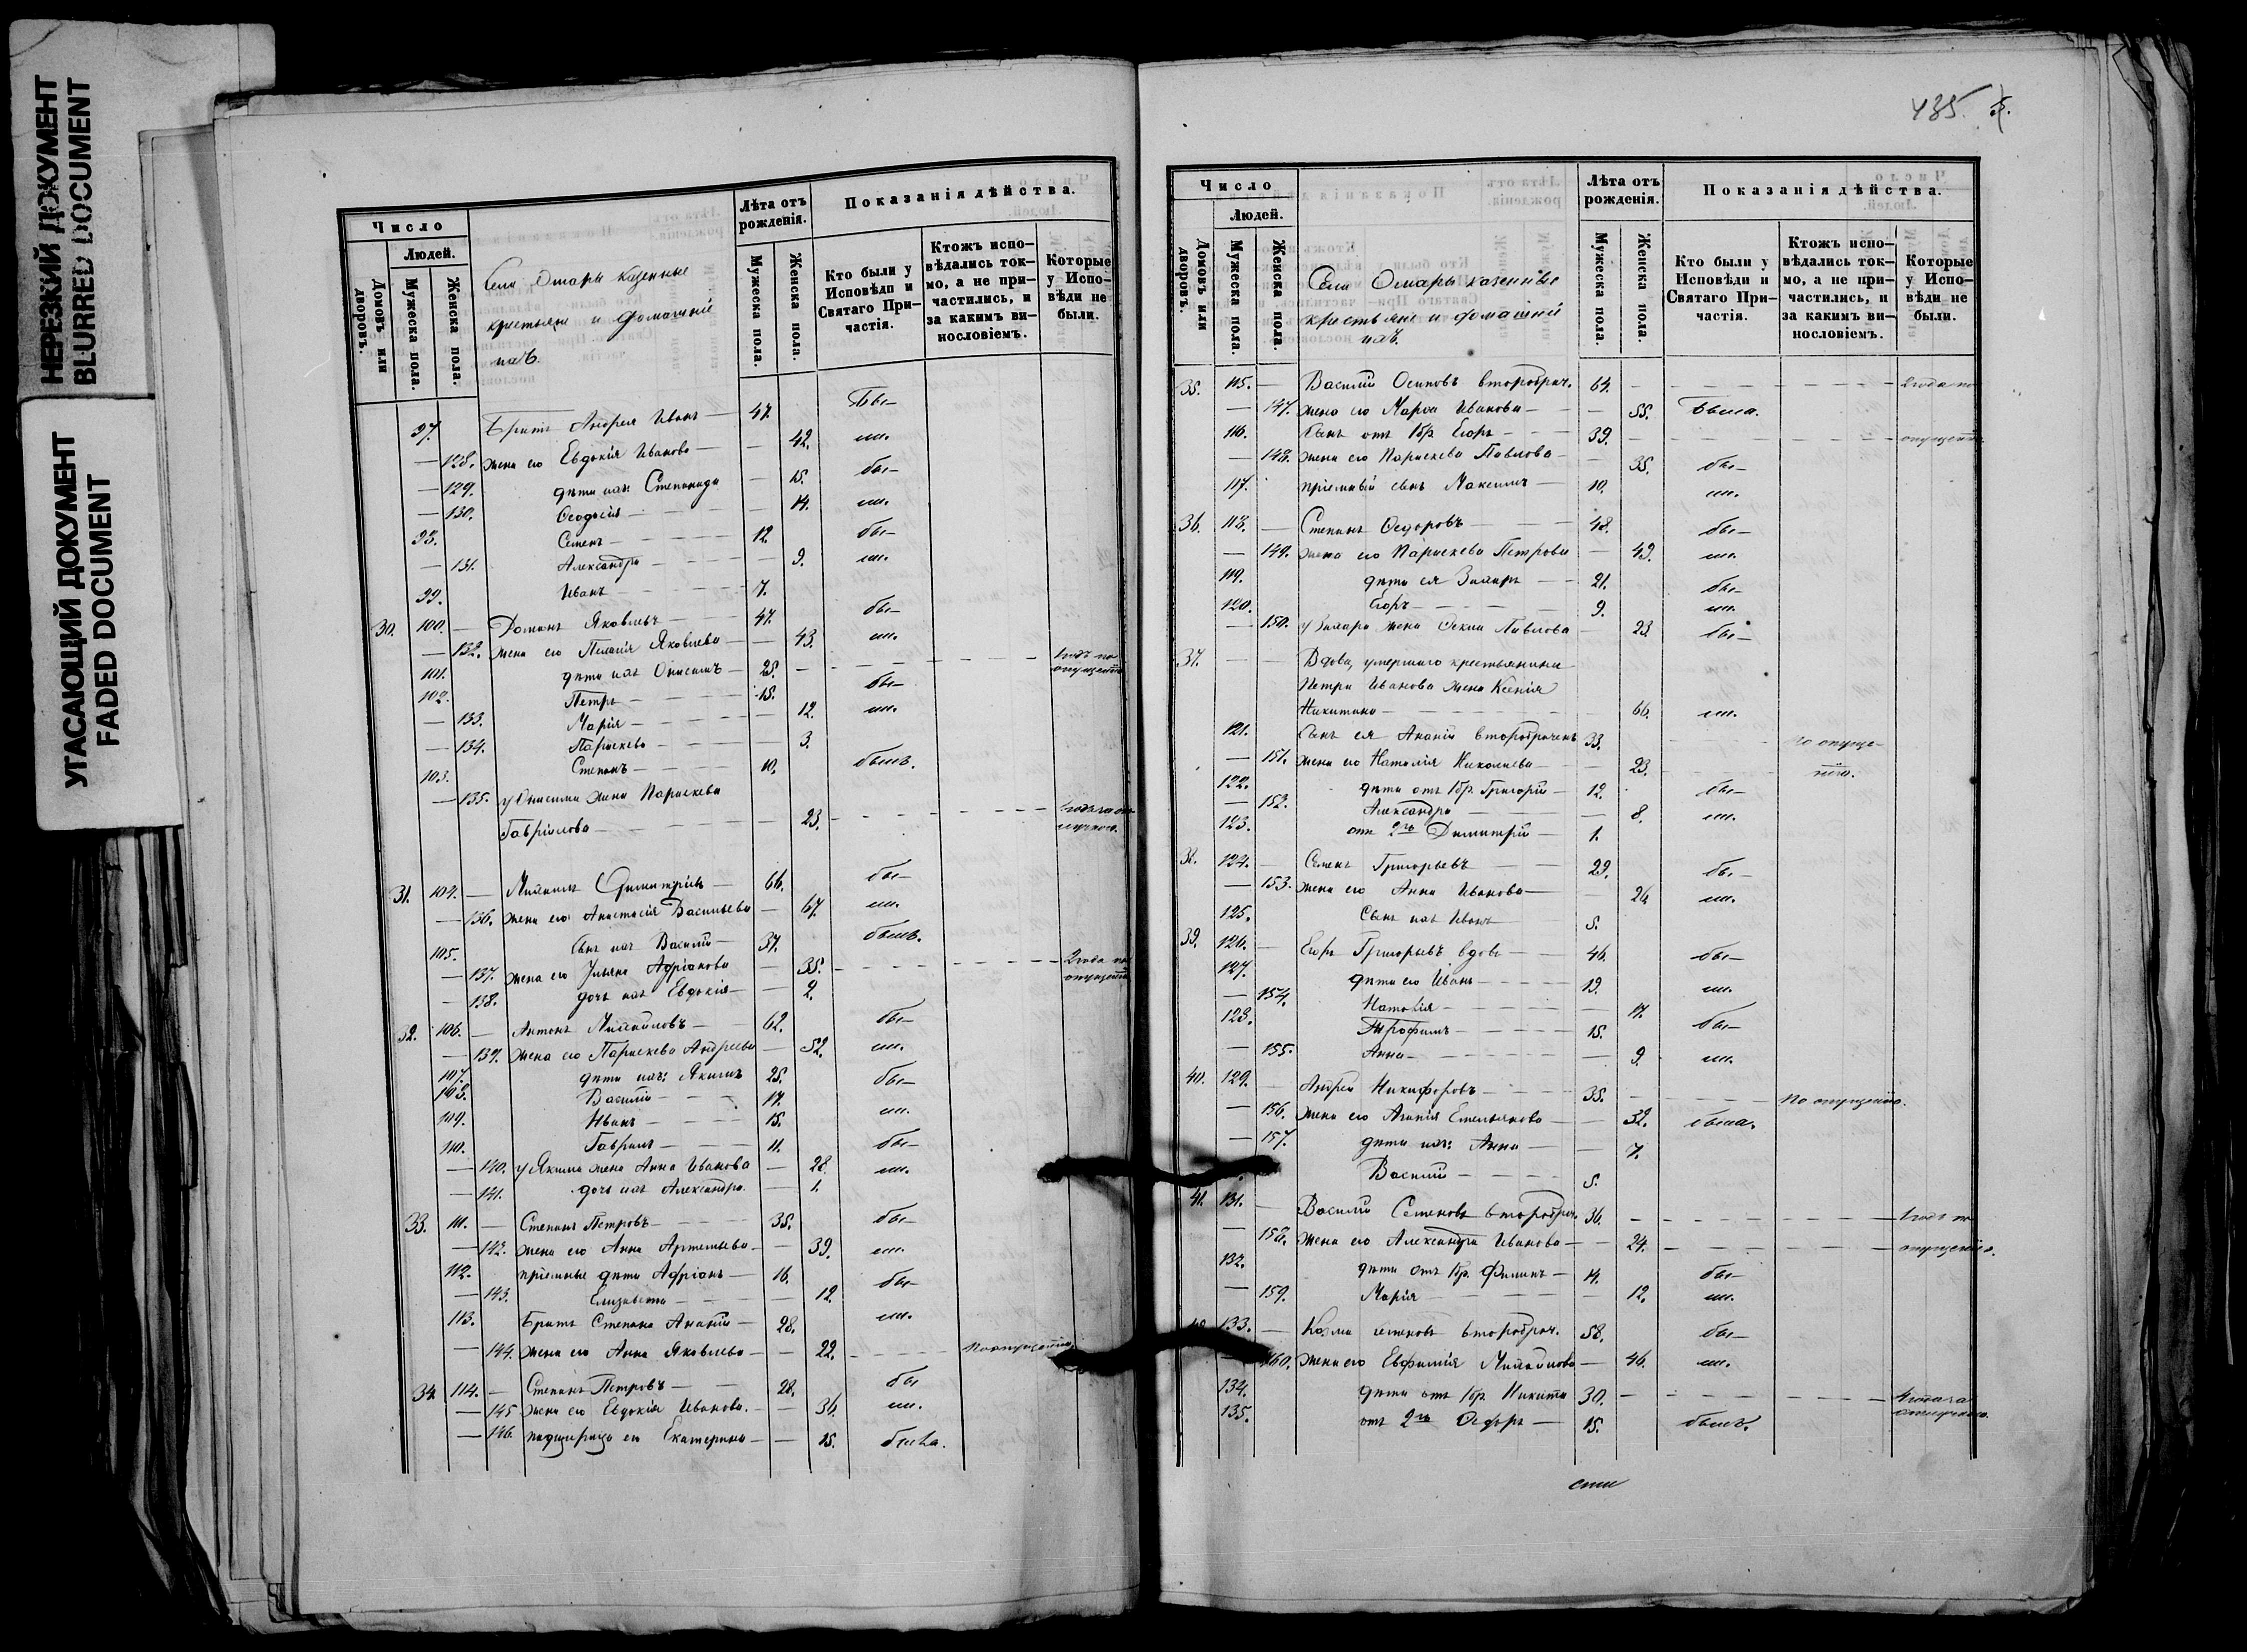 НЕРЕЗКИЙ ДОКУМЕНТ
BLURRED DOCUMENT
УГАСАЮЩИЙ ДОКУМЕНТ
FADED DOCUMENT
Число
Людей.
Домовъ или дворовъ.
Мужеска пола.
Женска пола.
Села Омары казенные
крестьяне и домашніе
ихъ.
Лѣта отъ рожденія.
Мужеска пола.
Женска пола.
Показанія дѣйства.
Кто были у Исповѣди и Святаго При-частія.
Ктожъ испо-вѣдались ток-мо, а не при-частились, и за какимъ ви-нословіемъ.
Которые у Испо-вѣди не были.
97. Братъ Андрея Иванъ — 47. Бы—
— 128. жена его Евдокія Иванова — — 42. ли.
— 129. дѣти ихъ: Степанида — 15. бы—
— 130. Ѳеодосія — — 14. ли.
98. Семенъ — 12. бы—
— 131. Александра — — 9. ли.
99. Иванъ — 7.
30. 100. — Романъ Яковлевъ — 47. бы—
— 132. жена его Пелагія Яковлева — — 43. ли.
101. дѣти ихъ Онисимъ — 25. — 1 годъ по опущенію
102. Петръ — 15. бы—
— 133. Марія — — 12. ли.
— 134. Параскева — — 3.
103. Степанъ — 10. былъ.
— 135. у Онисима жена Параскева
Гавріилова — — 23. —
31. 104. — Михаилъ Димитріевъ — 66. бы—
— 136. жена его Анастасія Васильева — 67. ли.
105. сынъ ихъ Василій — 37. былъ.
— 137. жена его Ульяна Адріанова — 35. — 2 года по опущенію
— 138. дочь ихъ Евдокія — — 2.
32. 106. — Антонъ Михайловъ — 62. бы—
— 139. жена его Параскева Андреева — 52. ли.
107. дѣти ихъ: Якимъ 25. бы—
108. Василій — 17.
109. Иванъ — 15. ли.
110. Гаврилъ — 11. бы—
— 140. у Якима жена Анна Иванова — 28. ли.
— 141. дочь ихъ Александра. — 1.
33. 111. — Степанъ Петровъ — 35. бы—
— 142. жена его Анна Артемьева — — 39. ли.
112. пріемные дѣти Адріанъ — 16. бы—
— 143. Елизавета — — 12.
113. Братъ Степана Ананій — 28. ли.
— 144. жена его Анна Яковлева — — 22. — По опущенію
34. 114. — Степанъ Петровъ — 28. бы
— 145. жена его Евдокія Иванова. — 36. ли.
— 146. падчерица его Екатерина — — 15. была.
435.
Число
Людей.
Домовъ или дворовъ.
Мужеска пола.
Женска пола.
Села Омары казенные
крестьяне и домашніе
ихъ.
Лѣта отъ рожденія.
Мужеска пола.
Женска пола.
Показанія дѣйства.
Кто были у Исповѣди и Святаго При-частія.
Ктожъ испо-вѣдались ток-мо, а не при-частились, и за какимъ ви-нословіемъ.
Которые у Испо-вѣди не были.
35. 115. — Василій Осиповъ второбрач. 64. — 2 года по
— 147. жена его Марѳа Иванова — — 55. Была.
116. сынъ отъ 1 бр. Егоръ — 39. — опущенію.
— 148. жена его Параскева Павлова — — 35. бы—
117. пріемный сынъ Максимъ — 10. ли.
36. 118. — Степанъ Ѳедоровъ — 48. бы—
— 149. жена его Параскева Петрова — 49. ли.
119. дѣти ея — 21. бы—
120. Егоръ — 9. ли.
— 150. жена Павлова — 23. бы—
37. — — Вдова, умершаго крестьянина
Петра Иванова жена Ксенія
Никитина — — 66. ли.
121. Сынъ ея Ананій второбраченъ 33. По опуще-
— 151. жена его Наталія Николаева — — 23. нію.
122. дѣти отъ 1 бр. Григорій — 12. бы—
— 152. Александра — — 8. ли.
123. отъ 2го Димитрій — 1.
38. 124. — Семенъ Григорьевъ — 29. бы—
— 153. жена его Анна Иванова — — 26. ли.
125. Сынъ ихъ Иванъ — 5.
39. 126. — Егоръ Григорьевъ вдовъ — 46. бы—
127. дѣти его Иванъ — 19. ли.
— 154. Наталія — — 17.
128. Трофимъ — 15. бы—
— 155. Анна — — 9. ли.
40. 129. — Андрей Никифоровъ — 35. — По опущенію.
— 156. жена его Агапія Емельянова — — 32. была.
— 157. дѣти ихъ: Анна — — 7.
Василій — 5.
41. 131. — Василій Семеновъ второбрач. 36. — 1 годъ по
— 158. жена его Александра Иванова — — 24. — опущенію.
132. дѣти отъ 1 бр. Филипъ — 14. бы—
— 159. Марія — — 12. ли.
133. — Козма Семеновъ второбрач. 58. бы—
160. жена его Евфимія Михайлова — 46. ли.
134. дѣти отъ 1 бр. Никита 30. —
135. отъ 2го Ѳедоръ — 15. былъ.